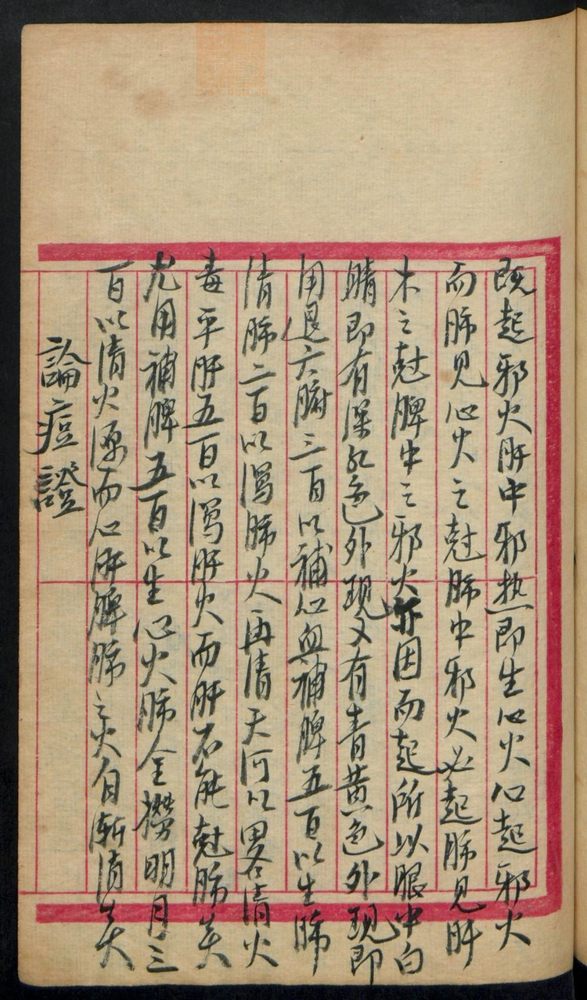 既起邪火肝中邪热即生心火心起邪火
而肺見心火之尅肺中邪火必起肺見肝
木之尅脾中之邪火亦因而起所以眼中白
睛即有深红色外現又有青黄色外現即
用退六腑三百以補心血補脾五百以生肺
清肺二百以瀉肺火再清天河以畧清火
毒平肝五百以瀉肝火而肝不能尅肺矣
尤用補脾五百以生心火肺金撈明月三
百以清火源而心肝脾肺之火自漸消矣
論痘證